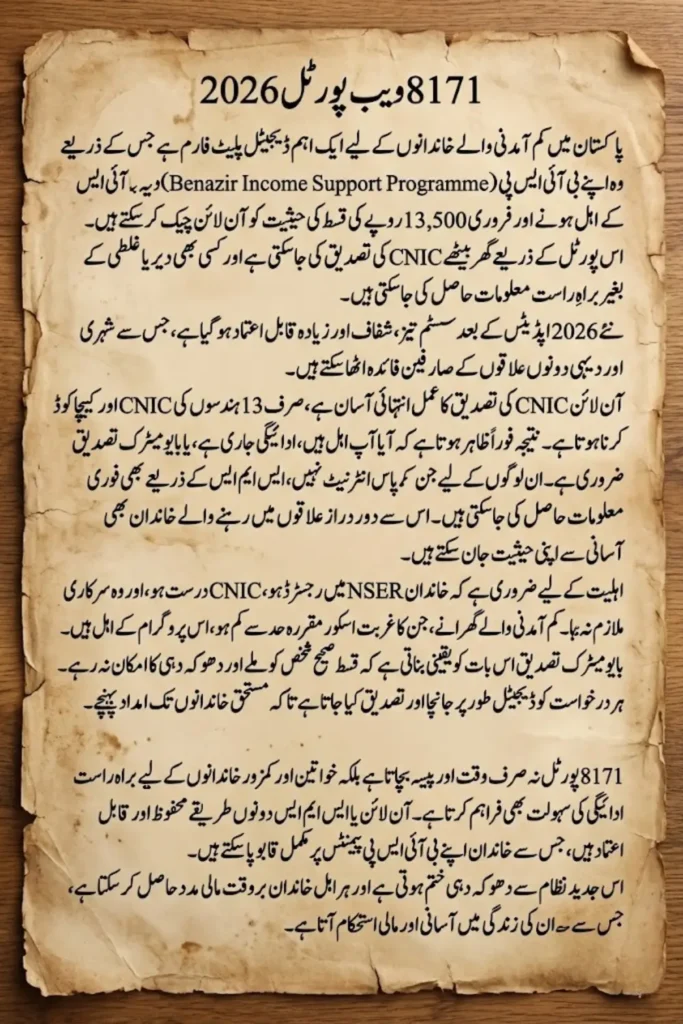 8171ویب پورٹل 2026
پاکستان میں کم آمدنی والے خاندانوں کے لیے ایک اہم ڈیجیٹل پلیٹ فارم ہے جس کے ذریعے
وہ اپنے بی آئی ایس پی (Benazir Income Support Programme) آئی ایس
کے اہل ہونے اور فروری 13,500 روپے کی قسط کی حیثیت کو آن لائن چیک کر سکتے ہیں۔
اس پورٹل کے ذریعے گھر بیٹھے CNIC کی تصدیق کی جا سکتی ہے اور کسی بھی دیر یا غلطی کے
بغیر براہِ راست معلومات حاصل کی جا سکتی ہیں۔
نئے 2026 اپڈیٹس کے بعد سسٹم تیز، شفاف اور زیادہ قابل اعتماد ہو گیا ہے، جس سے شہری
اور دیہی دونوں علاقوں کے صارفین فائدہ اٹھا سکتے ہیں۔
آن لائن CNIC کی تصدیق کا عمل انتہائی آسان ہے، صرف 13 ہندسوں کی CNIC اور کیپچا کوڈ
کرنا ہوتا ہے۔ نتیجہ فوراً ظاہر ہوتا ہے کہ آیا آپ اہل ہیں، ادائیگی جاری ہے، یا بایومیٹرک تصدیق
ضروری ہے۔ ان لوگوں کے لیے جن کے پاس انٹرنیٹ نہیں، ایس ایم ایس کے ذریعے بھی فوری
معلومات حاصل کی جا سکتی ہیں۔ اس سے دور دراز علاقوں میں رہنے والے خاندان بھی
آسانی سے اپنی حیثیت جان سکتے ہیں۔
اہلیت کے لیے ضروری ہے کہ خاندان NSER میں رجسٹرڈ ہو، CNIC درست ہو، اور وہ سرکاری
ملازم نہ ہو۔ کم آمدنی والے گھرانے، جن کا غربت اسکور مقررہ حد سے کم ہو، اس پروگرام کے اہل ہیں۔
بایومیٹرک تصدیق اس بات کو یقینی بناتی ہے کہ قسط صحیح شخص کو ملے اور دھوکہ دہی کا امکان نہ رہے۔
ہر درخواست کو ڈیجیٹل طور پر جانچا اور تصدیق کیا جاتا ہے تاکہ مستحق خاندانوں تک امداد پہنچے۔
8171 پورٹل نہ صرف وقت اور پیسہ بچاتا ہے بلکہ خواتین اور کمزور خاندانوں کے لیے براہ راست
ادائیگی کی سہولت بھی فراہم کرتا ہے۔ آن لائن یا ایس ایم ایس دونوں طریقے محفوظ اور قابل
اعتماد ہیں، جس سے خاندان اپنے بی آئی ایس پی پیمنٹس پر مکمل قابو پا سکتے ہیں۔
اس جدید نظام سے دھوکہ دہی ختم ہوتی ہے اور ہر اہل خاندان بروقت مالی مدد حاصل کر سکتا ہے،
جس سے ان کی زندگی میں آسانی اور مالی استحکام آتا ہے۔